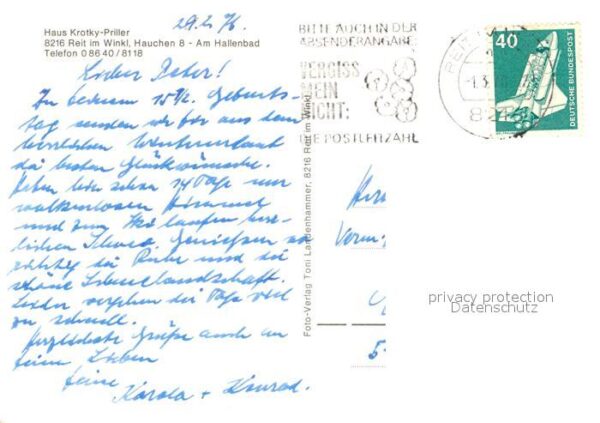 29.2.76.
Haus Krotky-Priller
8216 Reit im Winkl, Hauchen 8 - Am Hallenbad
Telefon 0 86 40 / 81 18
Lieber Peter!
Zu Deinem 15/2. Geburts-
tag senden wir Dir aus dem
herrlichen Winterurlaub
die besten Glückwünsche.
Haben hier schon 14 Tage nur
wolkenlosen Himmel
und zum Ski laufen herr-
lichen Schnee. Genießen so
richtig die Ruhe und die
schöne Schneelandschaft.
Leider vergehen die Tage viel
zu schnell.
Herzlichste Grüße auch an
Deine Lieben
Deine
Karola + Konrad.
Foto-Verlag Toni Landenhammer, 8216 Reit im Winkl
BITTE AUCH IN DER
ABSENDERANGABE
VERGISS
MEIN
NICHT:
DIE POSTLEITZAHL
REIT IM WINKL
-1.3.
821
40
DEUTSCHE BUNDESPOST
privacy protection
Datenschutz